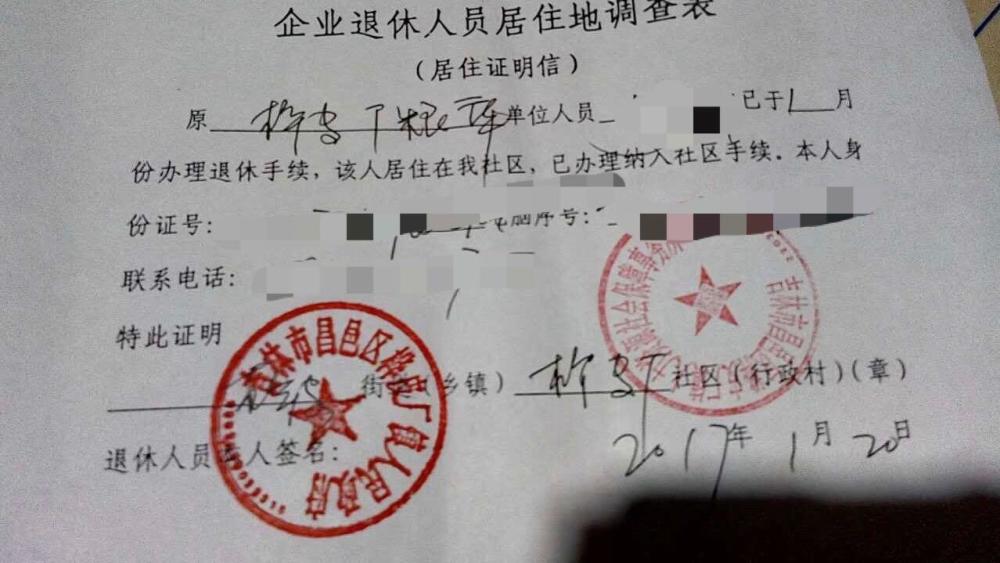 企业退休人员居住地调查表
(居住证明信)
原 桦皮厂粮库 单位人员 已于1月
份办理退休手续，该人居住在我社区，已办理纳入社区手续。本人身
份证号： 电脑序号：
联系电话：
特此证明
街道(乡镇) 桦皮厂 社区(行政村)(章)
退休人员本人签名：
2017年1月20日
吉林市昌邑区桦皮厂镇人民政府